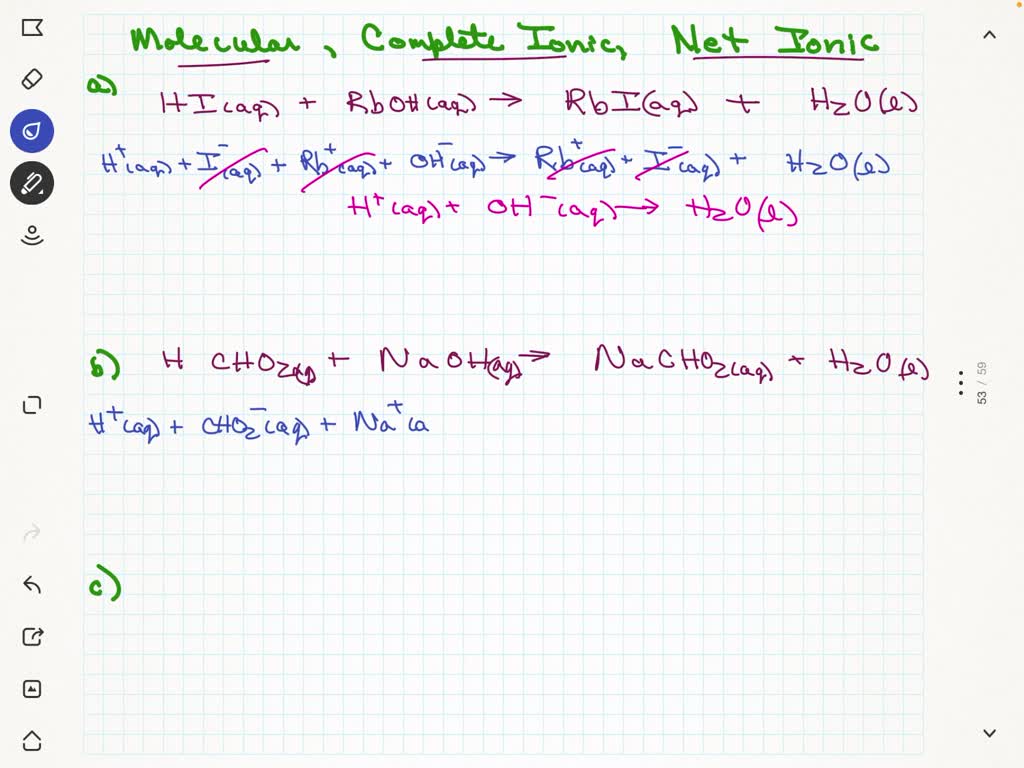 Molecular, Complete Ionic, Net Ionic
a)
HI(aq) + RbOH(aq) → RbI(aq) + H₂O(l)
H⁺(aq) + I⁻(aq) + Rb⁺(aq) + OH⁻(aq) → Rb⁺(aq) + I⁻(aq) + H₂O(l)
H⁺(aq) + OH⁻(aq) → H₂O(l)
b) H CHO₂(aq) + NaOH(aq) → NaCHO₂(aq) + H₂O(l)
53 / 59
H⁺(aq) + CHO₂⁻(aq) + Na⁺(a
c)